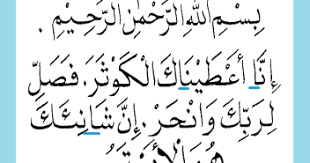 بِسْمِ اللهِ الرَّحْمٰنِ الرَّحِيْمِ.
إِنَّا أَعْطَيْنَاكَ الْكَوْثَرَ. فَصَلِّ
لِرَبِّكَ وَانْحَرْ. إِنَّ شَانِئَكَ
هُوَ الْأَبْتَرُ